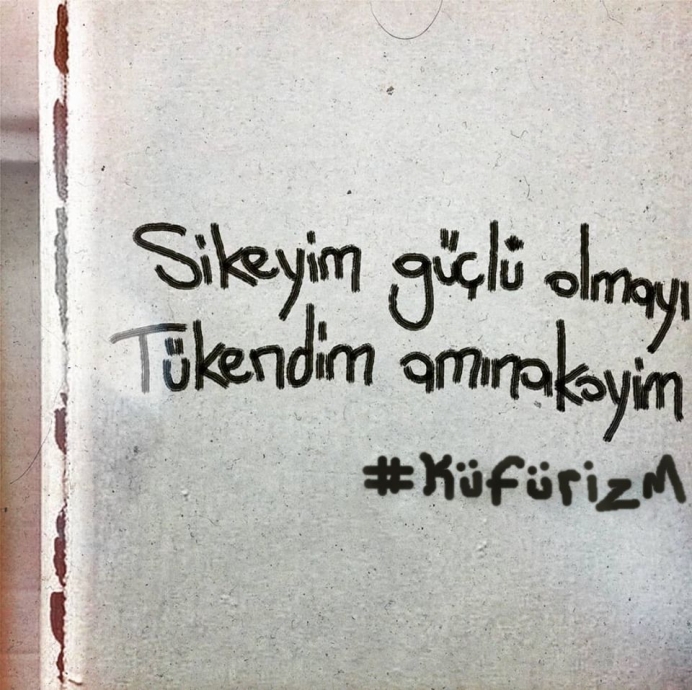 Sikeyim güçlü olmayı
Tükendim amınakoyim
#Küfürizm